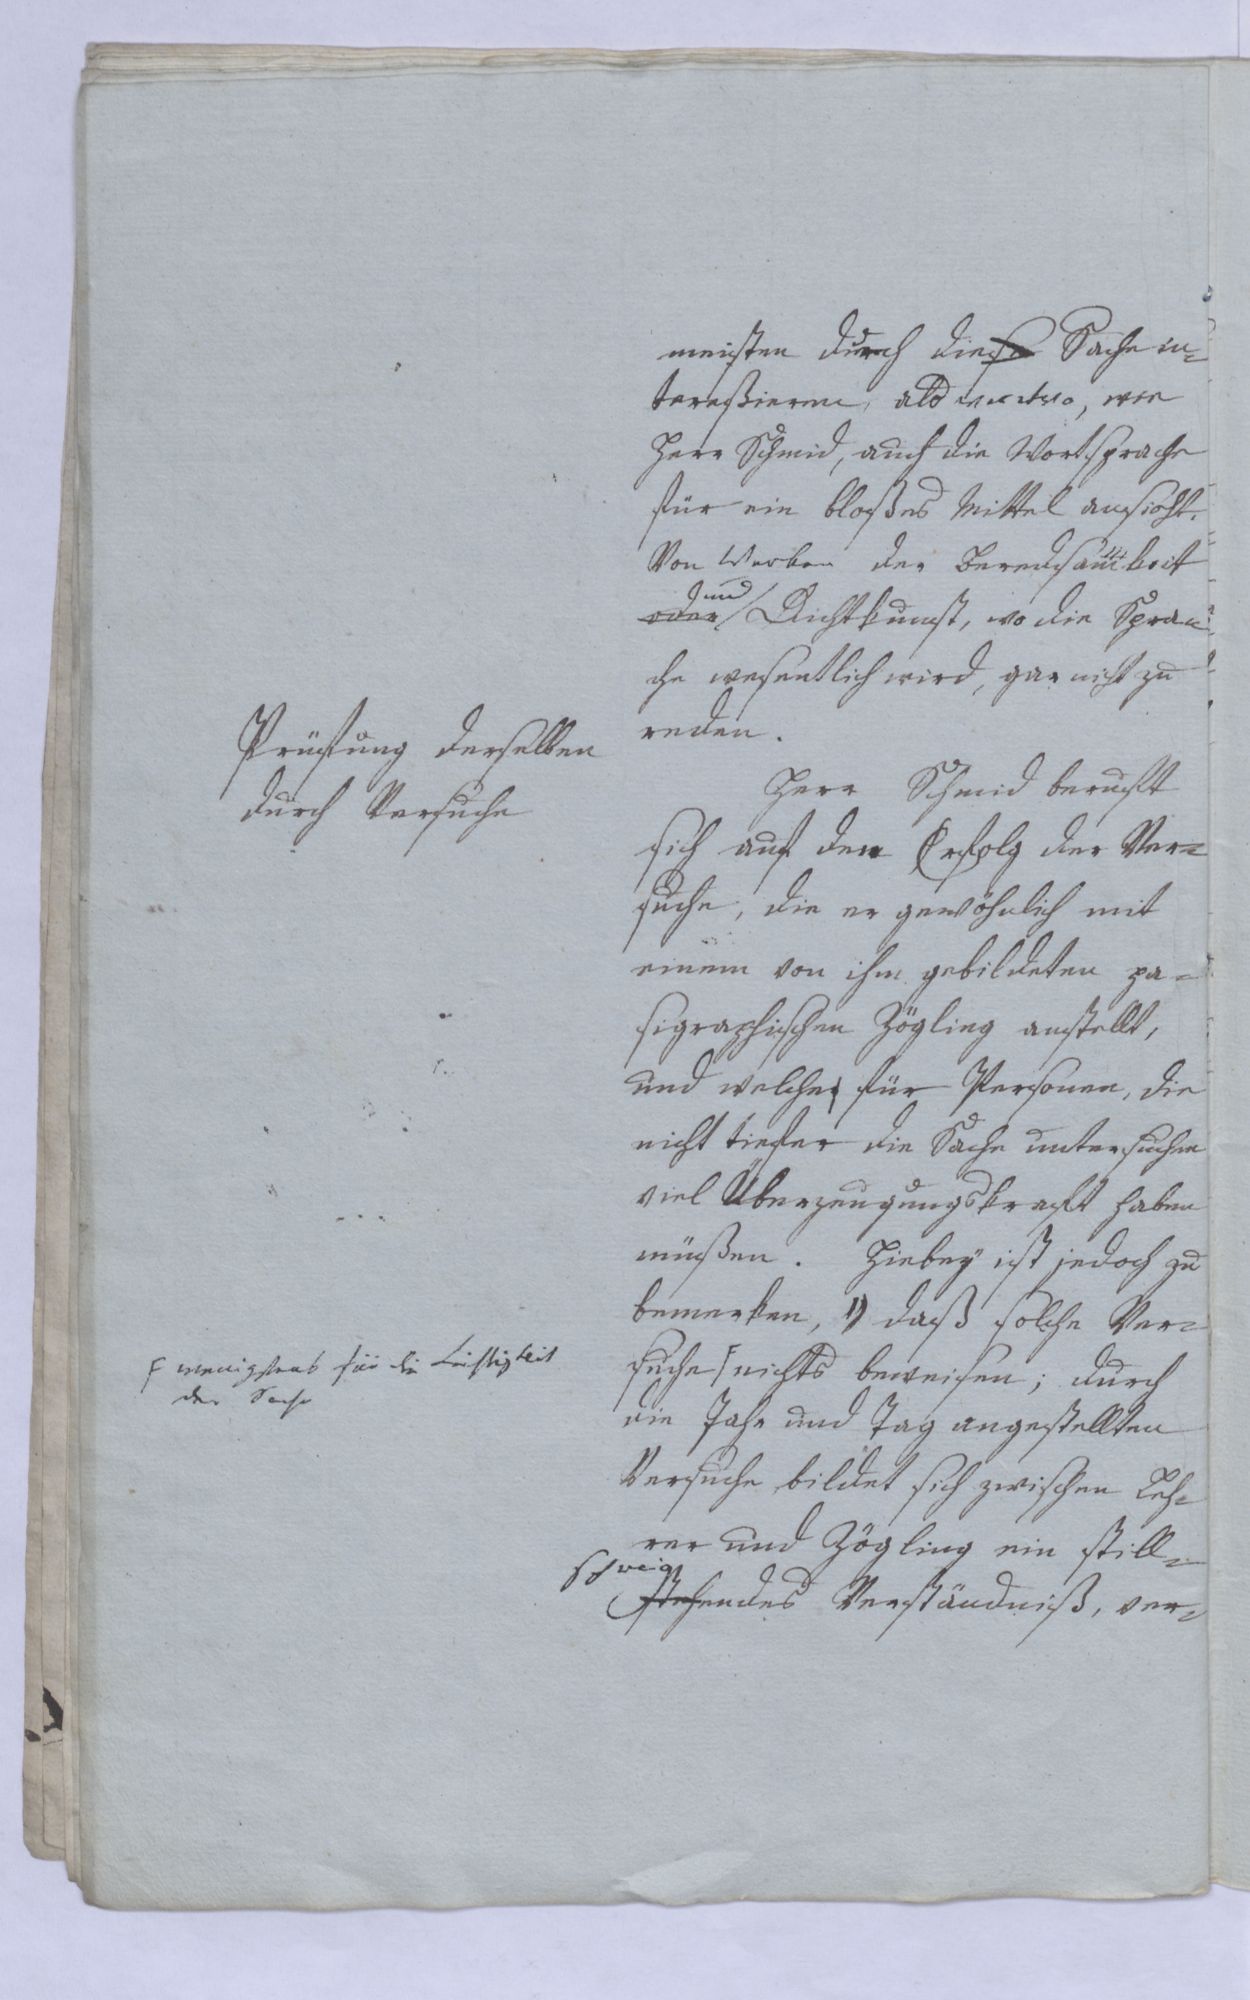 meisten durch die Sache in-
tereßieren, als wo, wie
Herr Schmid, auch die Wortsprache
für ein bloßes Mittel ansieht.
Von Werken der Beredsamkeit
und
oder Dichtkunst, wo die Spra-
che wesentlich wird, gar nicht zu
reden.
Prüfung derselben
durch Versuche
Herr Schmid beruft
sich auf den Erfolg der Ver-
suche, die er gewöhnlich mit
einem von ihm gebildeten pa-
sigraphischen Zögling anstellt,
und welche für Personen, die
nicht tiefer die Sache untersuchen
viel Überzeugungskraft haben
müßen. Hiebey ist jedoch zu
bemerken, 1) daß solche Ver-
suche nichts beweisen; durch
wenigstens für die
der Sache
die Jahr und Tag angestellten
Versuche bildet sich zwischen Leh-
rer und Zögling ein still-
schweig
stehendes Verständniß, ver-